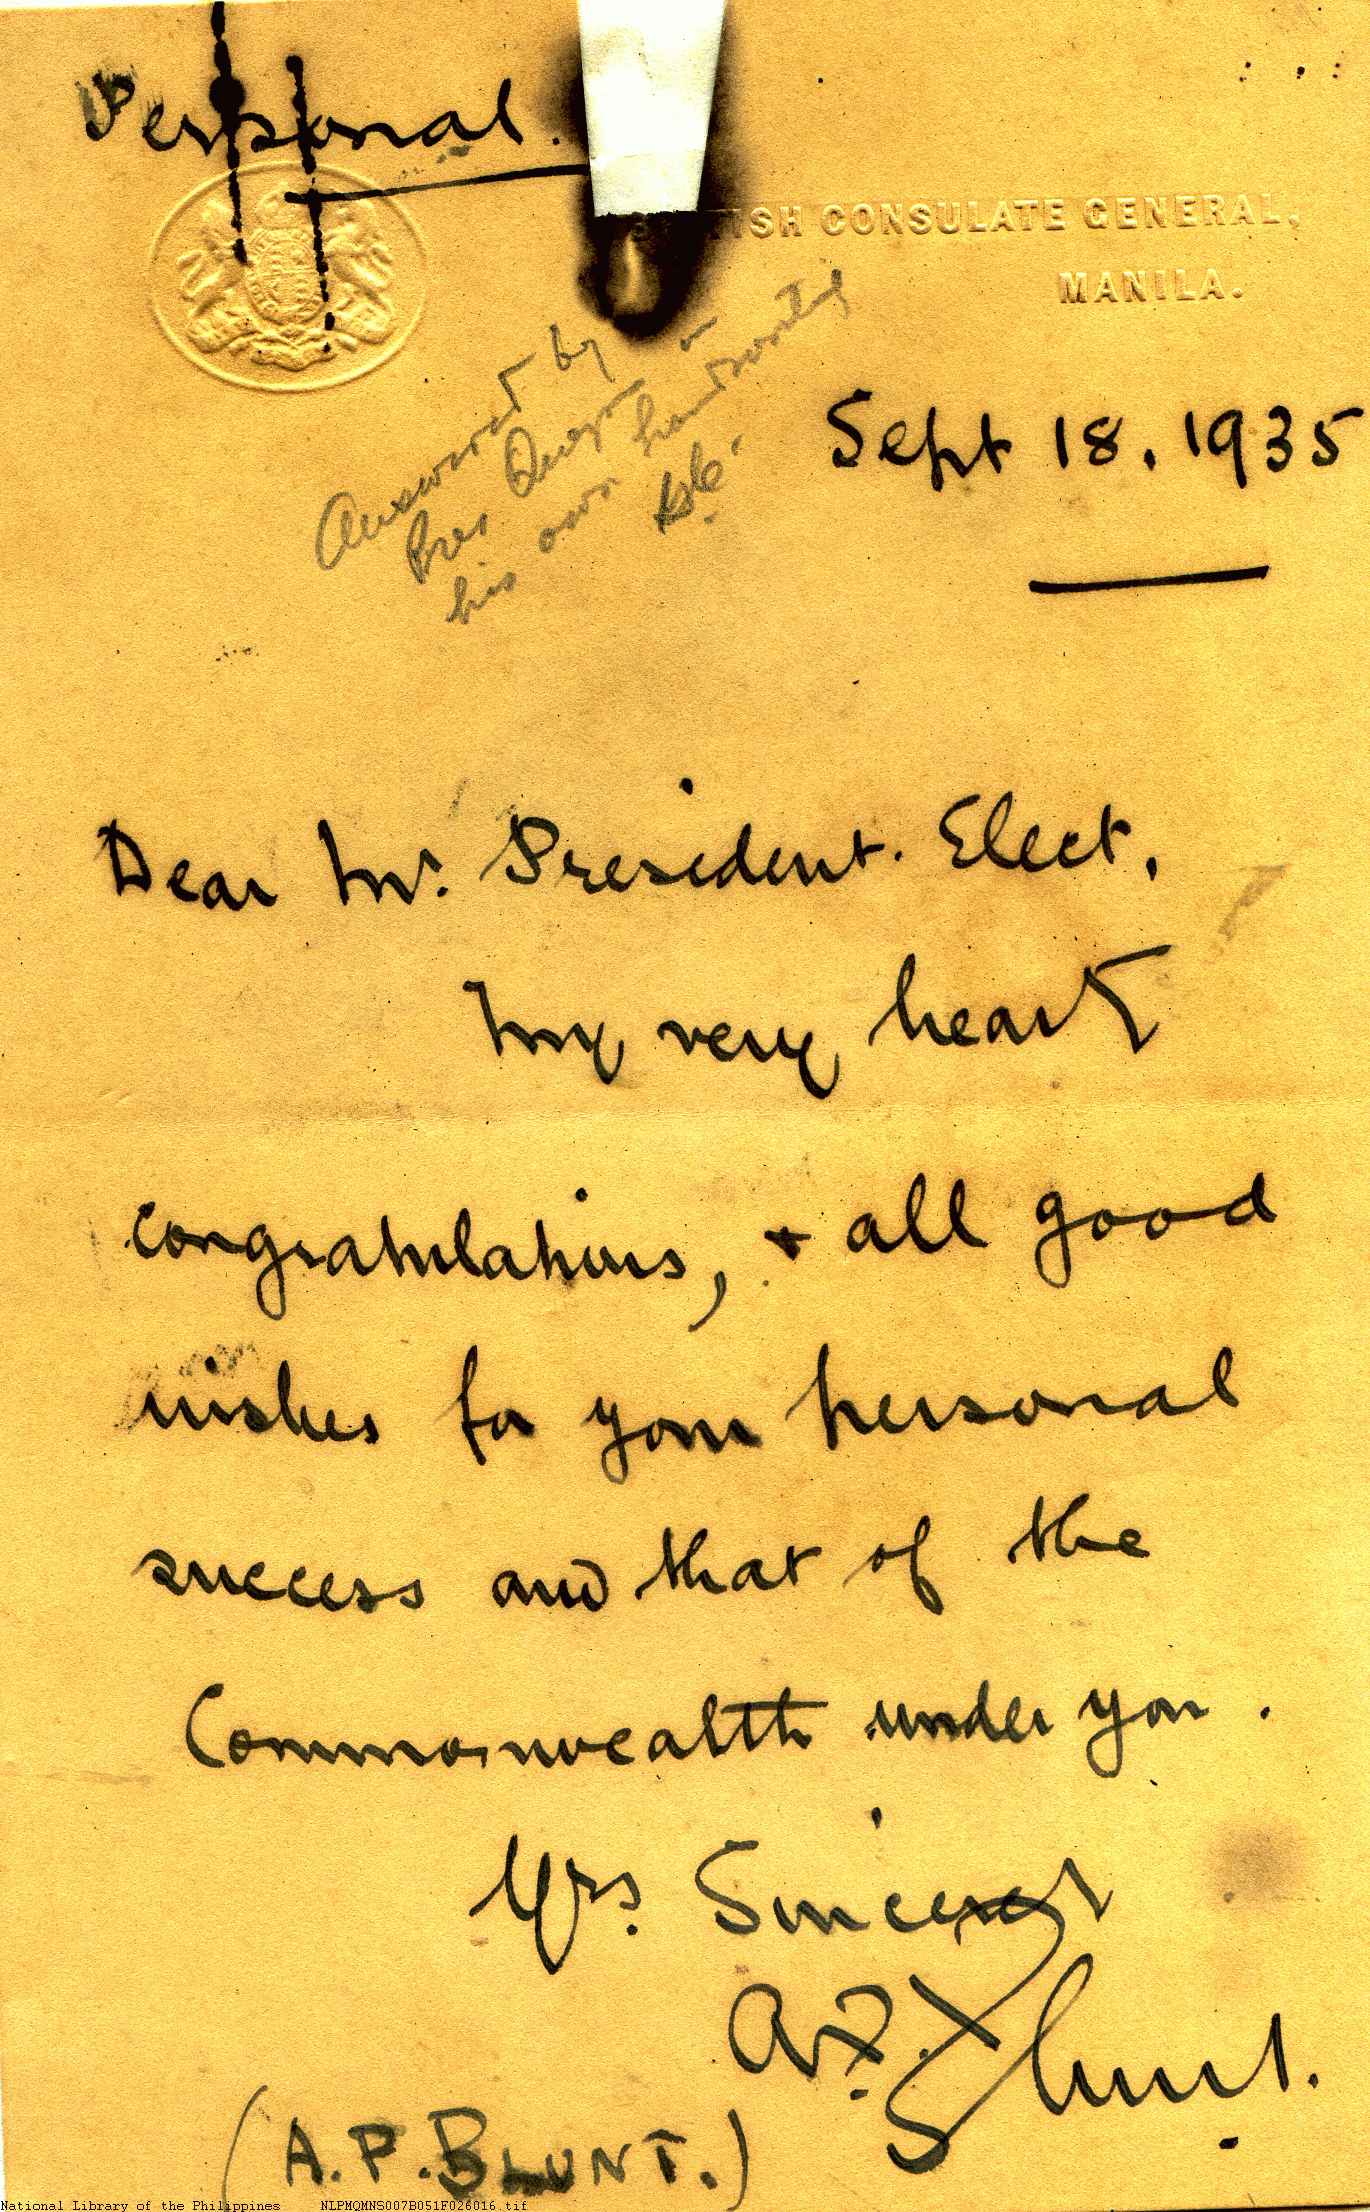 Personal.
BRITISH CONSULATE GENERAL,
MANILA.
Answered by
Pres Quezon in
his own handwriting
Sept 18, 1935
Dear Mr. President. Elect,
My very heart
congratulations, + all good
wishes for your personal
success and that of the
Commonwealth under you.
Yrs. Sincerely
A.P. Blunt.
(A.P. BLUNT.)
National Library of the Philippines NLPMQMNS007B051F026016.tif